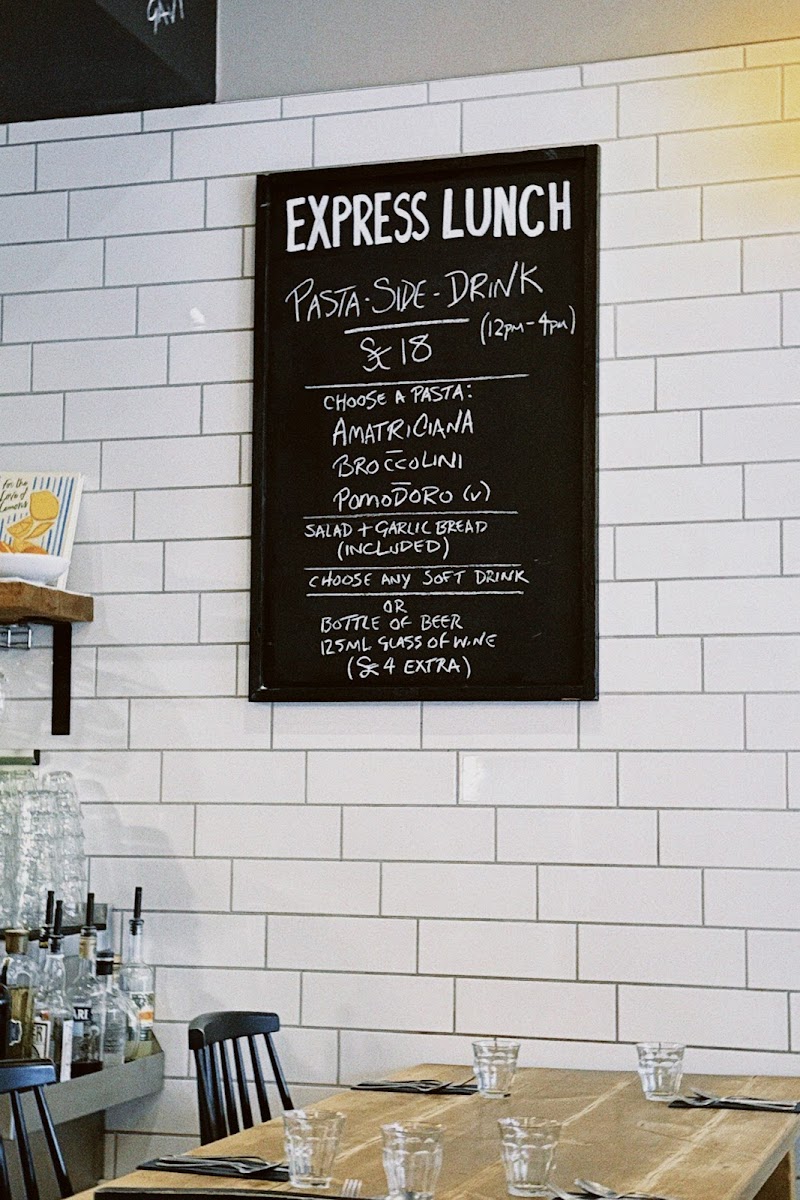 GAVI
EXPRESS LUNCH
PASTA-SIDE-DRINK
(12PM-4PM)
£18
CHOOSE A PASTA:
AMATRICIANA
BROCCOLINI
POMODORO (V)
SALAD + GARLIC BREAD
(INCLUDED)
CHOOSE ANY SOFT DRINK
OR
BOTTLE OF BEER
125ML GLASS OF WINE
(£4 EXTRA)
For the
Love of
Lemons